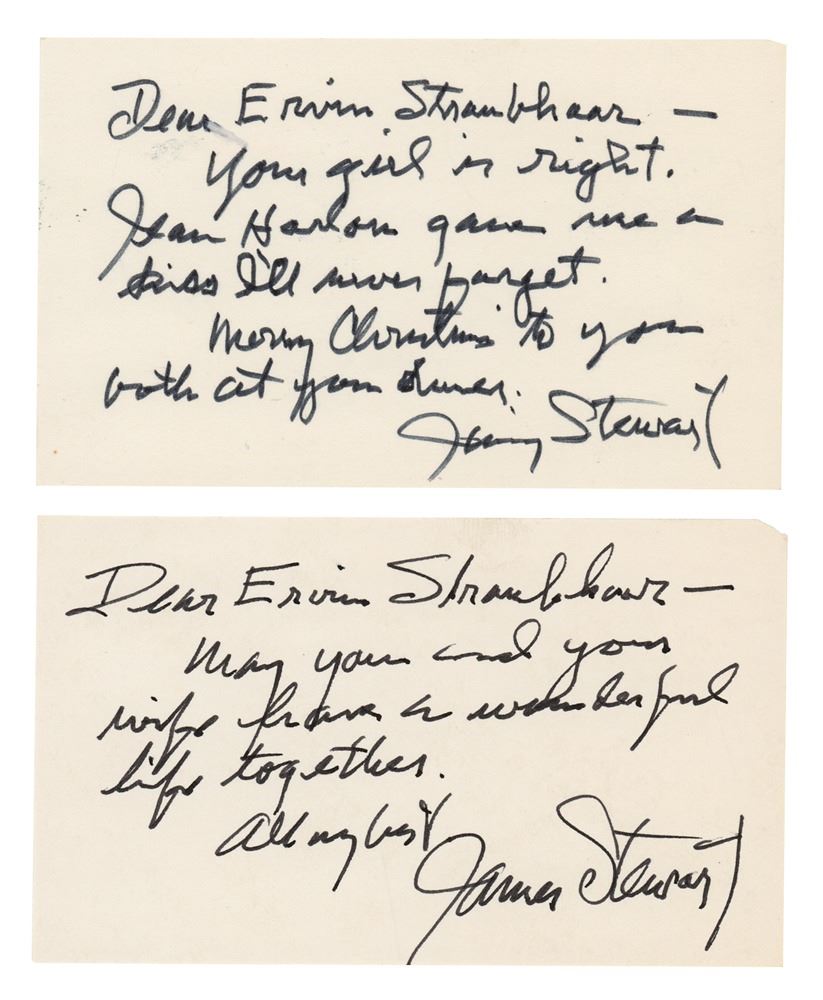 Dear Ervin Straubhaar —
Your girl is right.
Jean Harlow gave me a
kiss I'll never forget.
Merry Christmas to you
both at your dinner.
Jimmy Stewart
Dear Ervin Straubhaar —
May you and your
wife have a wonderful
life together.
All my best
James Stewart